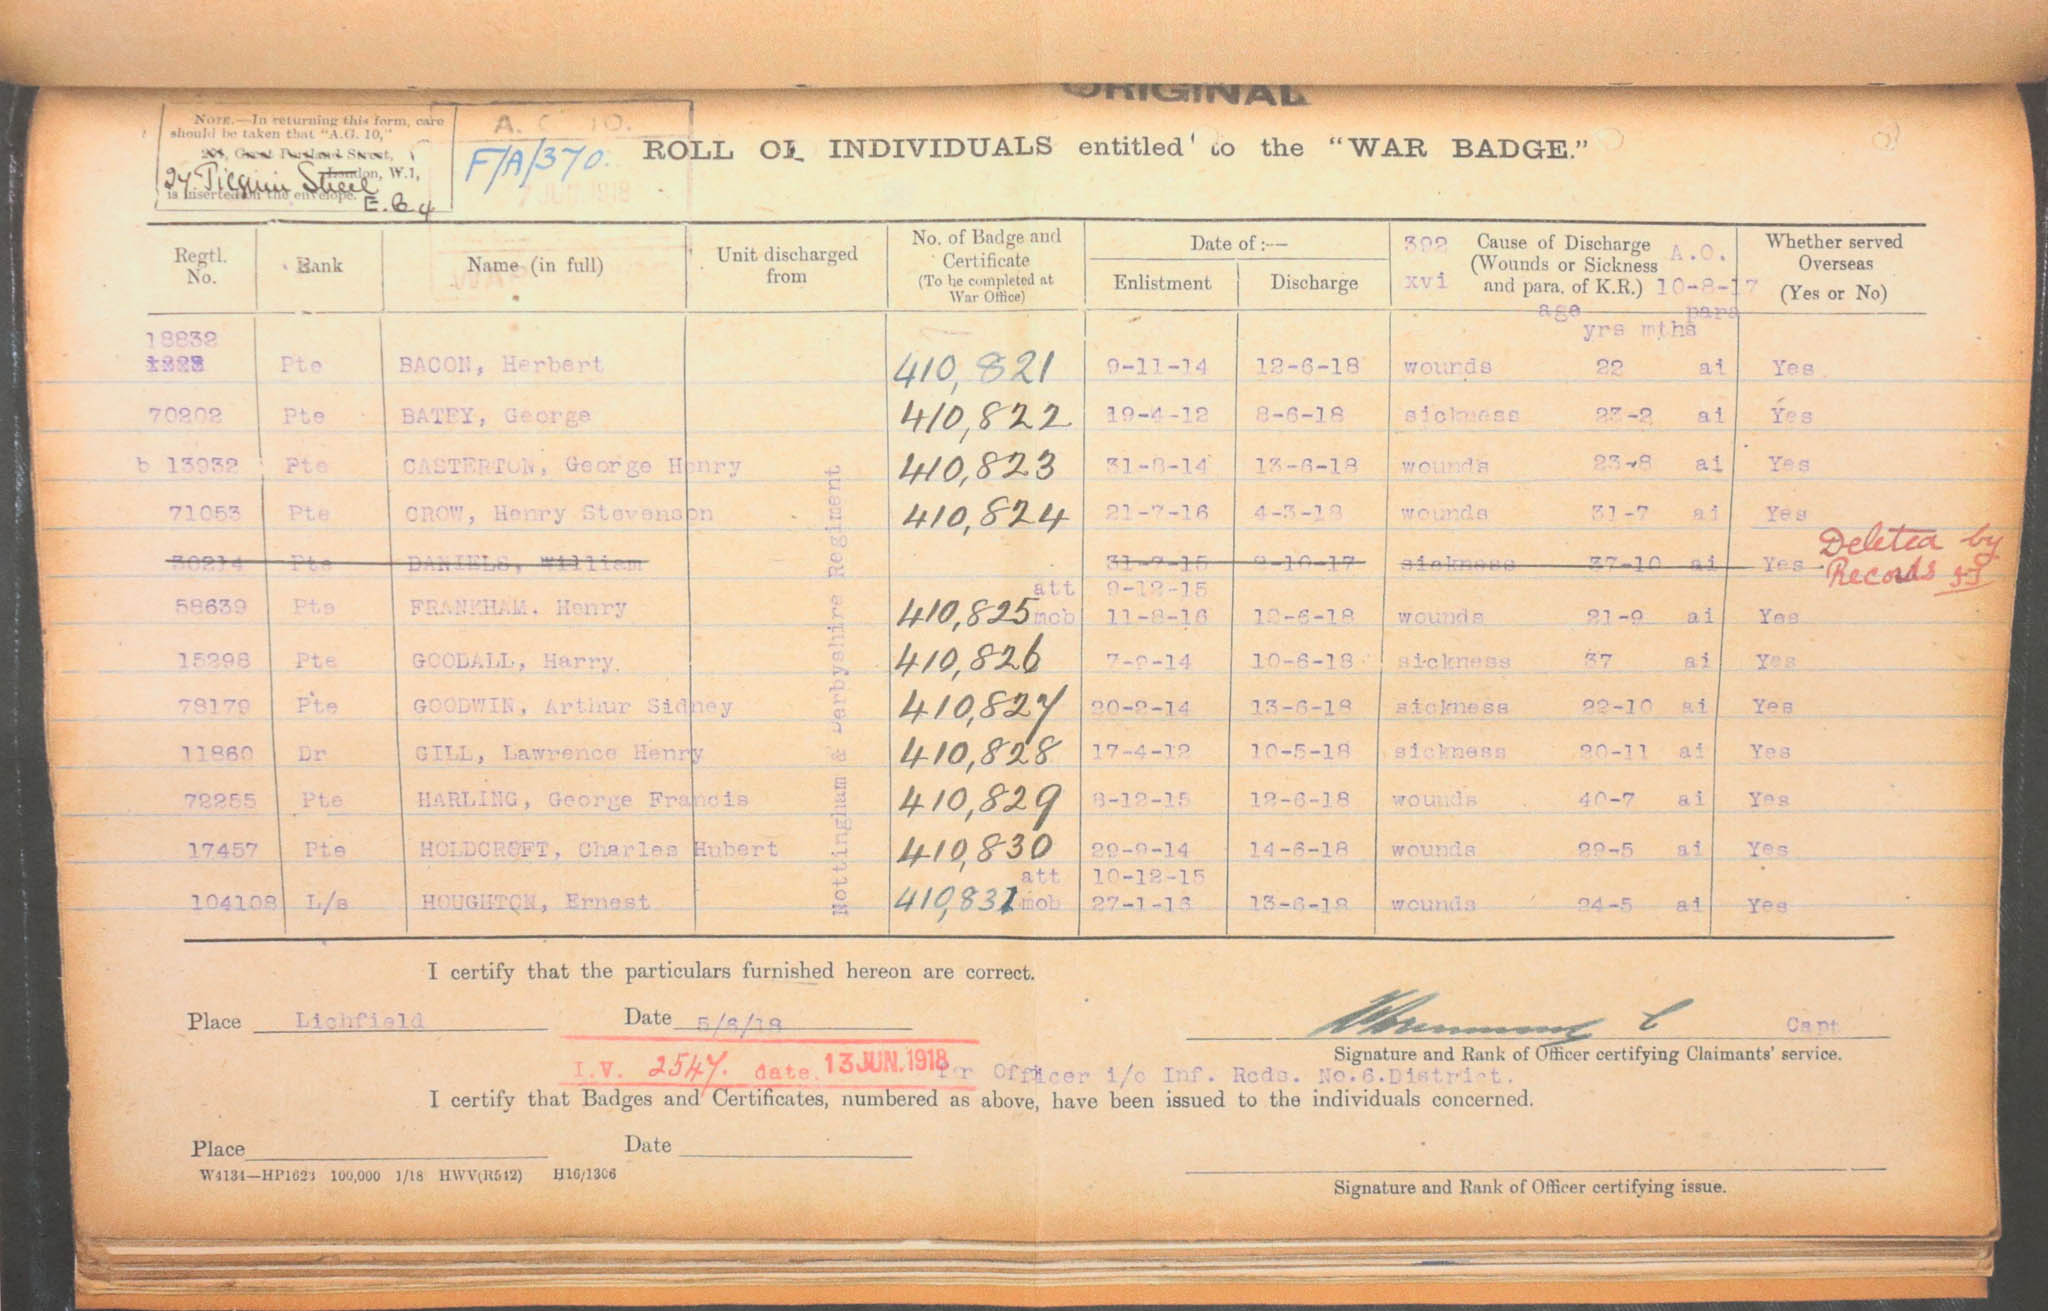 ORIGINAL
NOTE.—In returning this form, care
should be taken that "A.G. 10,"
Great Portland Street,
London, W.1,
27 Pilgrim Street
is inserted on the envelope. E.C.4
A. G 10.
F/A/370.
JUN 1918
ROLL OF INDIVIDUALS entitled to the "WAR BADGE."
Regtl. No. Rank Name (in full) Unit discharged from No. of Badge and Certificate (To be completed at War Office) Date of :— Enlistment Discharge 392 xvi Cause of Discharge (Wounds or Sickness and para. of K.R.) A.O. 10-8-17 Whether served Overseas (Yes or No)
age para
yrs mths
18832
1223 Pte BACON, Herbert 410,821 9-11-14 12-6-18 wounds 22 ai Yes
70202 Pte BATEY, George 410,822 19-4-12 8-6-18 sickness 23-2 ai Yes
b 13932 Pte CASTERTON, George Henry 410,823 31-8-14 13-6-18 wounds 23-8 ai Yes
71053 Pte CROW, Henry Stevenson 410,824 21-7-16 4-3-18 wounds 31-7 ai Yes
30214 Pte DANIELS, William 31-7-15 9-10-17 sickness 37-10 ai Yes Deleted by
Records
att 9-12-15
58639 Pte FRANKHAM. Henry 410,825 mob 11-8-16 12-6-18 wounds 21-9 ai Yes
15298 Pte GOODALL, Harry. 410,826 7-9-14 10-6-18 sickness 37 ai Yes
78179 Pte GOODWIN, Arthur Sidney 410,827 20-2-14 13-6-18 sickness 22-10 ai Yes
11860 Dr GILL, Lawrence Henry 410,828 17-4-12 10-5-18 sickness 20-11 ai Yes
72255 Pte HARLING, George Francis 410,829 8-12-15 12-6-18 wounds 40-7 ai Yes
17457 Pte HOLDCROFT, Charles Hubert 410,830 29-9-14 14-6-18 wounds 29-5 ai Yes
att 10-12-15
104108 L/s HOUGHTON, Ernest 410,831 mob 27-1-16 13-6-18 wounds 24-5 ai Yes
Nottingham & Derbyshire Regiment
I certify that the particulars furnished hereon are correct.
Place Lichfield Date 5/6/18 Capt
Signature and Rank of Officer certifying Claimants' service.
I.V. 2547. date. 13 JUN.1918 for Officer i/c Inf. Rcds. No.6.District.
I certify that Badges and Certificates, numbered as above, have been issued to the individuals concerned.
Place Date
W4134—HP1623 100,000 1/18 HWV(R542) H16/1306
Signature and Rank of Officer certifying issue.